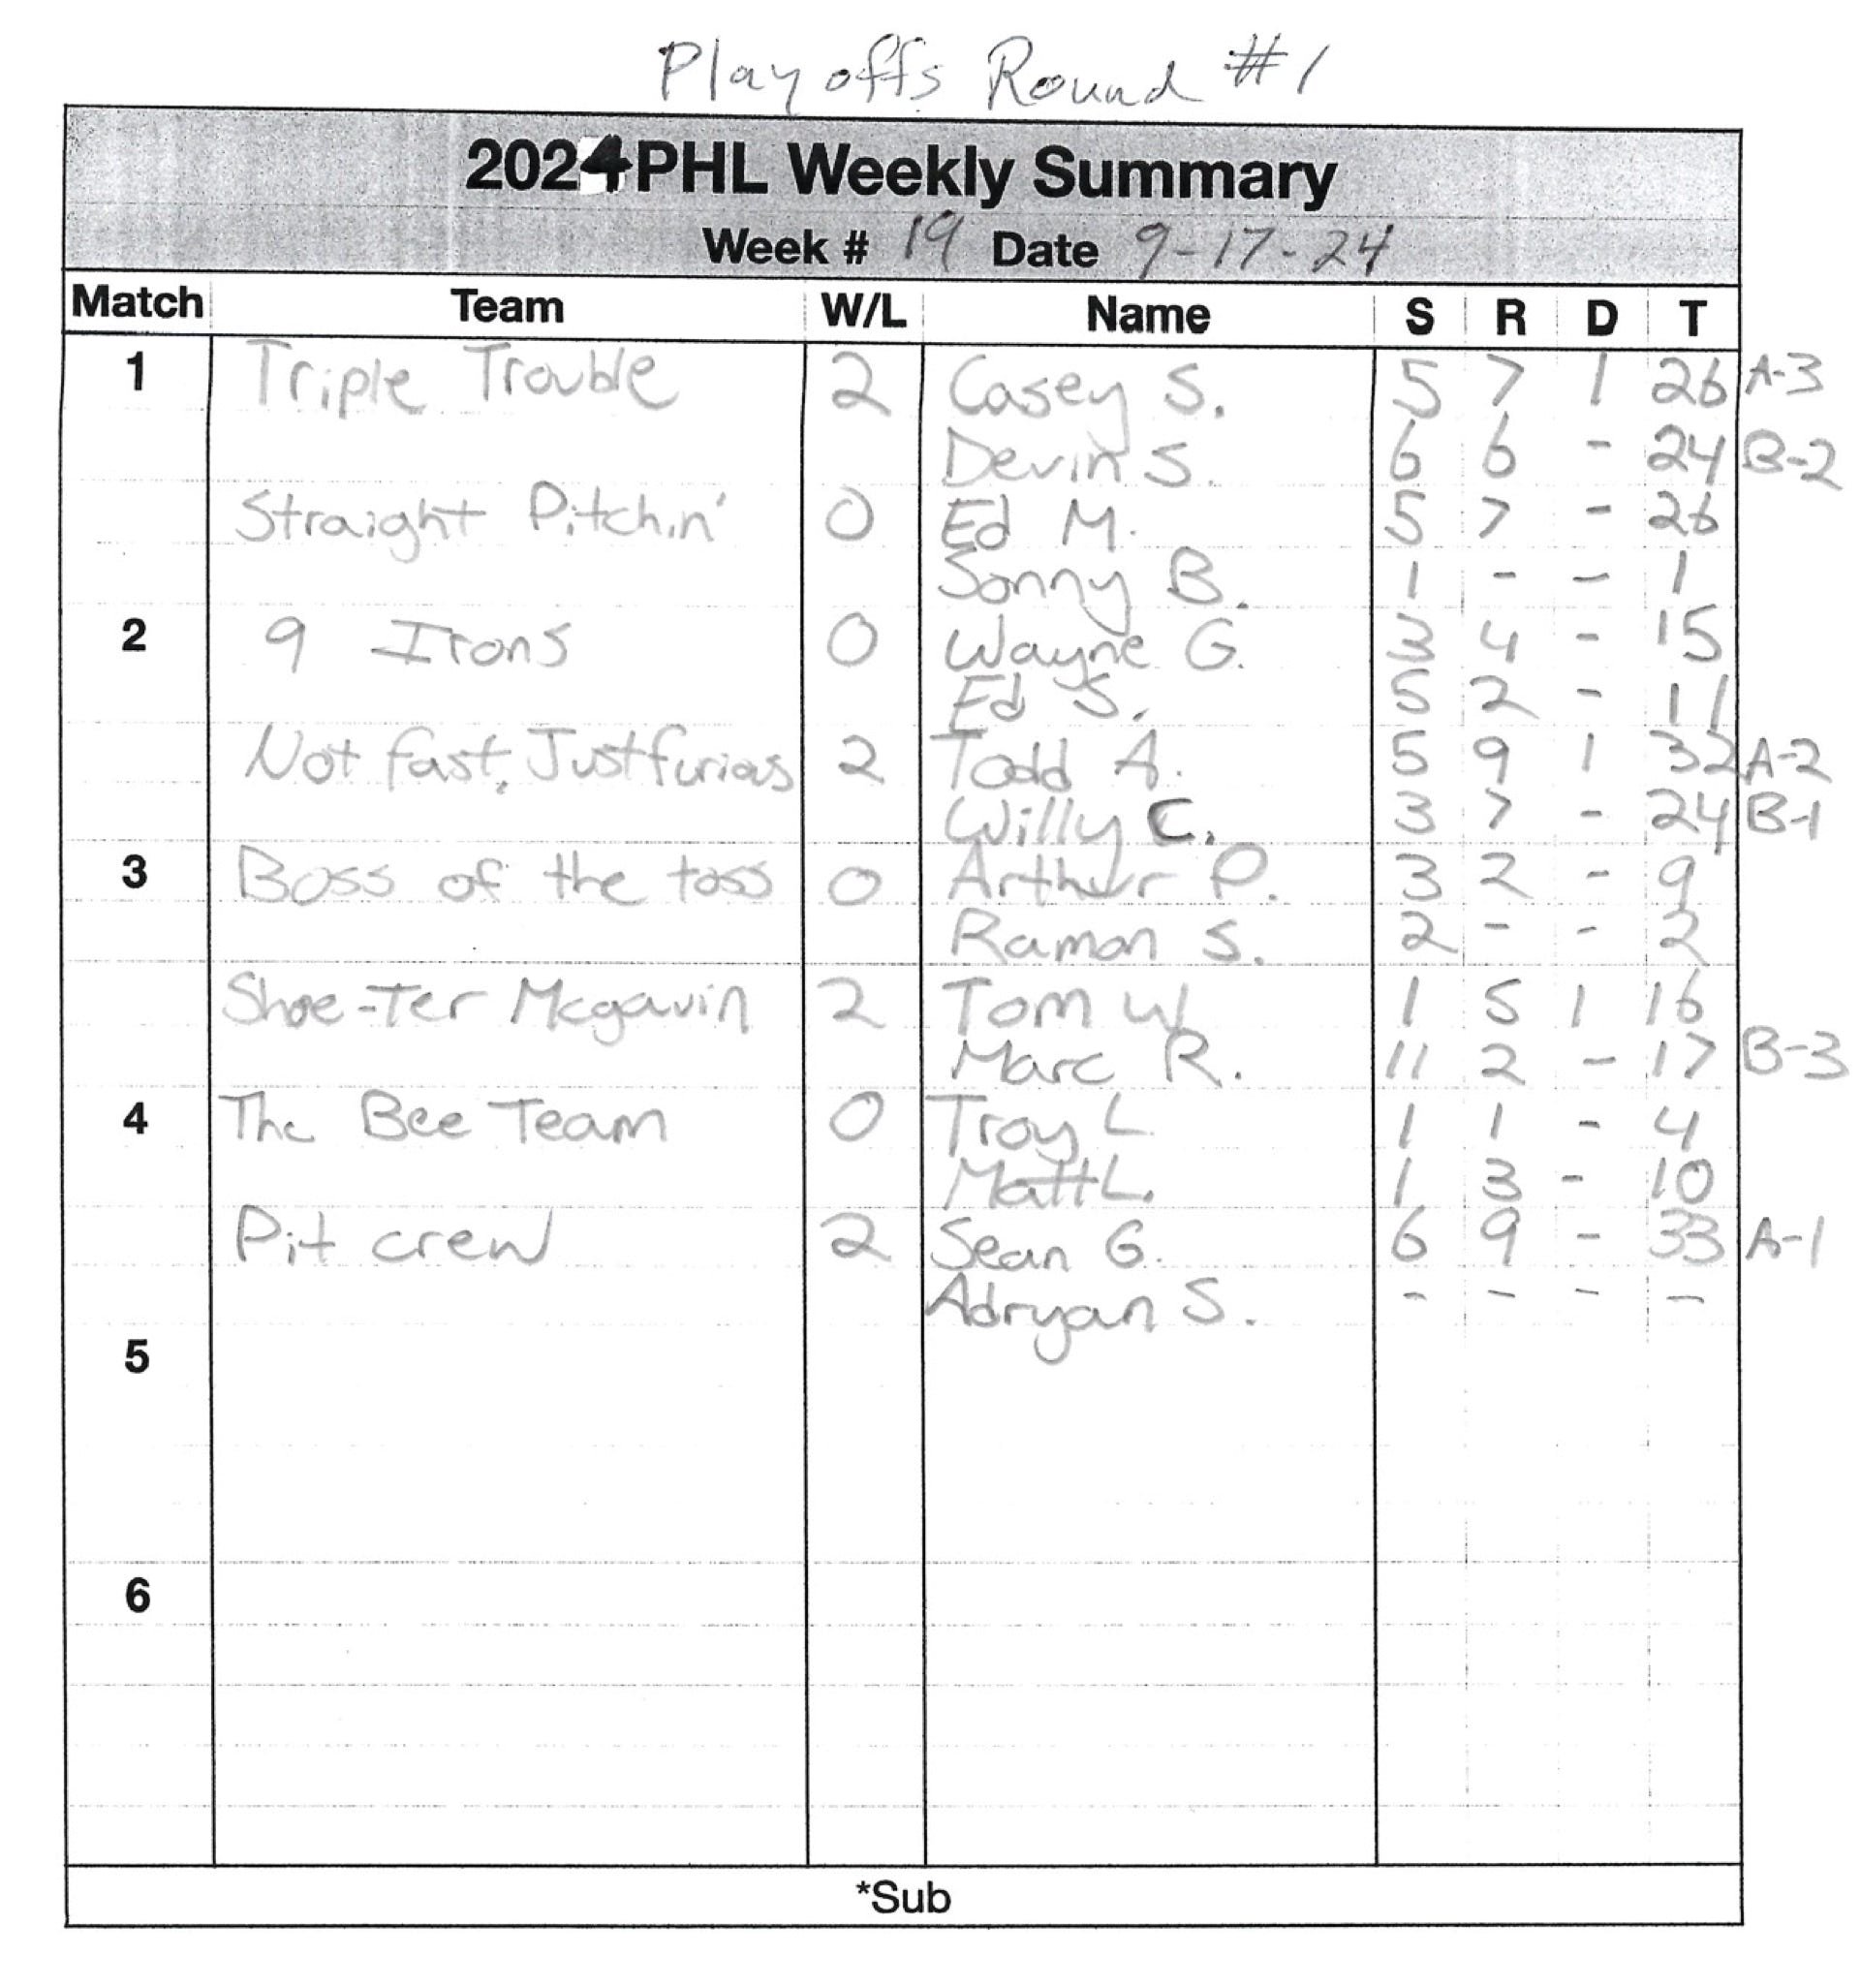 Playoffs Round #1
2024 PHL Weekly Summary
Week # 19 Date 9-17-24
Match Team W/L Name S R D T
1 Triple Trouble 2 Casey S. 5 7 1 26 A-3
Devin S. 6 6 - 24 B-2
Straight Pitchin' 0 Ed M. 5 7 - 26
Sonny B. 1 - - 1
2 9 Irons 0 Wayne G. 3 4 - 15
Ed S. 5 2 - 11
Not fast, Just furias 2 Todd A. 5 9 1 32 A-2
Willy C. 3 7 - 24 B-1
3 Boss of the toss 0 Arthur P. 3 2 - 9
Ramon S. 2 - - 2
Shoe-Ter Mcgavin 2 Tom W 1 5 1 16
Marc R. 11 2 - 17 B-3
4 The Bee Team 0 Troy L 1 1 - 4
Matt L. 1 3 - 10
Pit crew 2 Sean G. 6 9 - 33 A-1
Adryan S. - - - -
5
6
*Sub